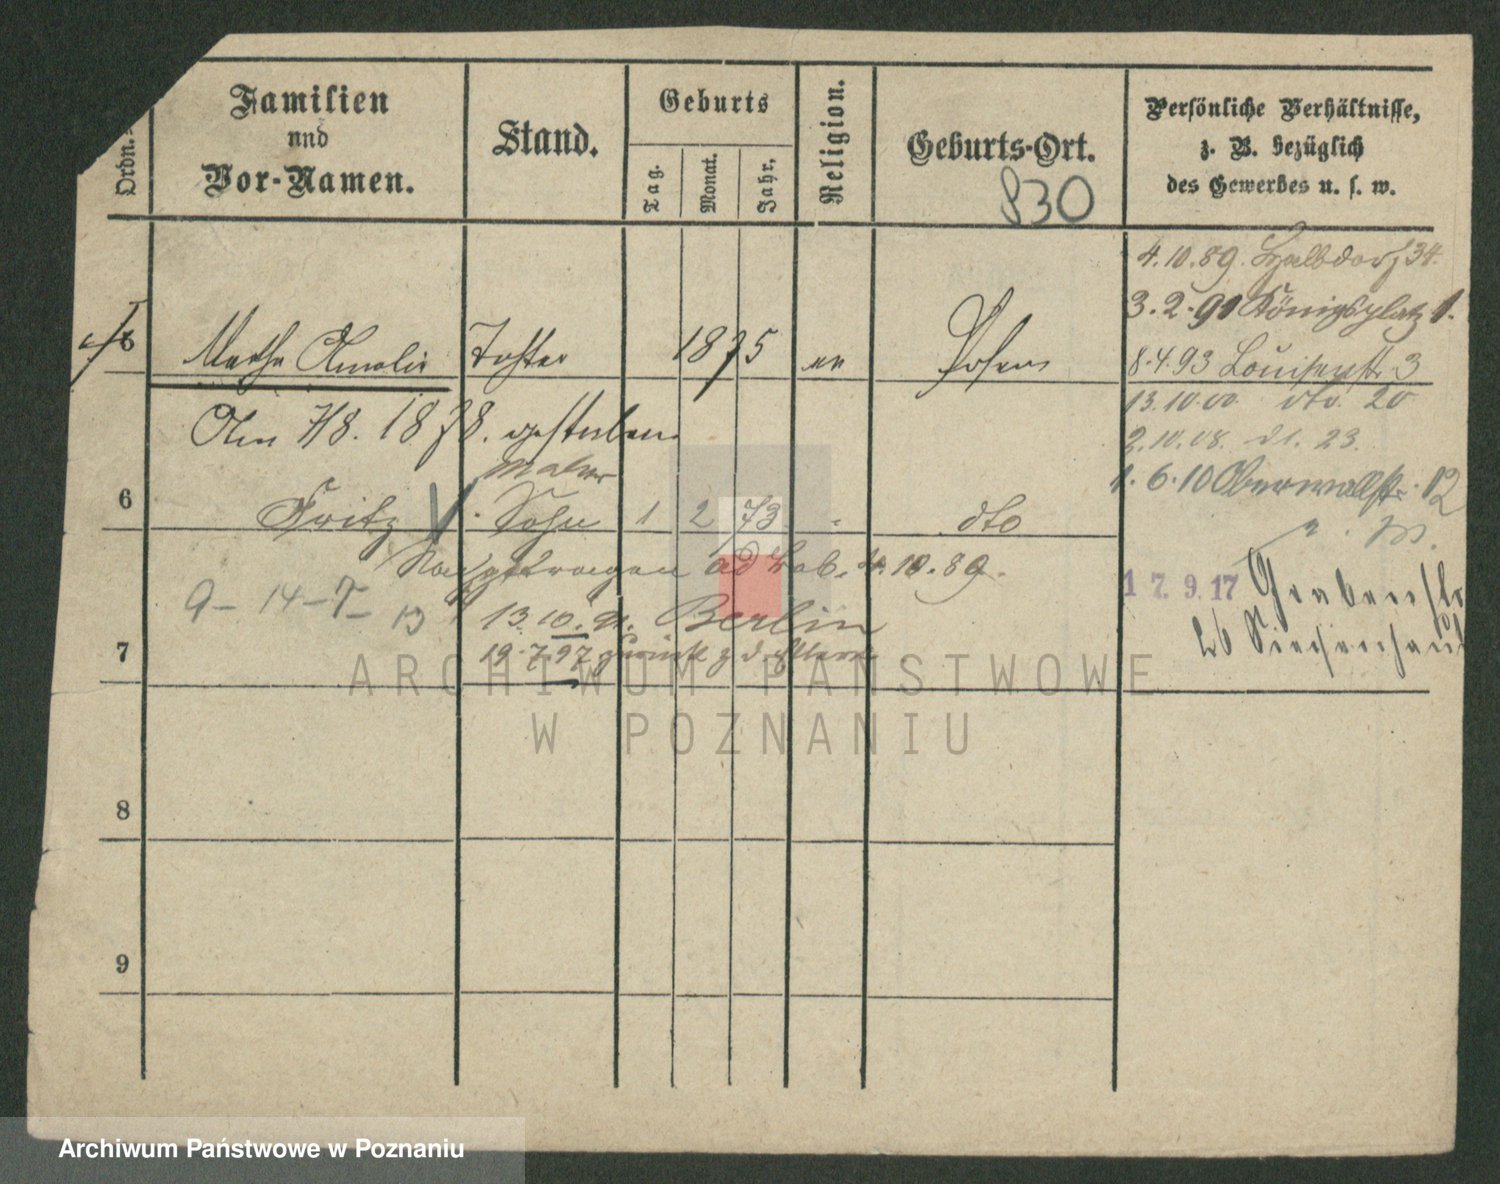 Ordn.
Familien
und
Vor-Namen.
Stand.
Geburts
Tag.
Monat.
Jahr.
Religion.
Geburts-Ort.
830
Persönliche Verhältnisse,
z. B. bezüglich
des Gewerbes u. s. w.
4.10.89. Halbdorf 34.
3.2.91 Königsplatz 1.
Amalie Tochter 1875 Posen
8.4.93 Louisenstr. 3
13.10.00 dto. 20
Am 7/8. 1878. gestorben
2.10.08. 23.
Maler
1.6.10 Oberwallstr. 12
6 Fritz Sohn 1 2 73 dto
Nachgetragen 4.10.89.
17.9.17 Grabenstr
9-14-7-13
13.10.91. Berlin
26 Siechenhaus
19.7.97 zurück z. d. Eltern
7
8
9
ARCHIWUM PAŃSTWOWE
W POZNANIU
Archiwum Państwowe w Poznaniu